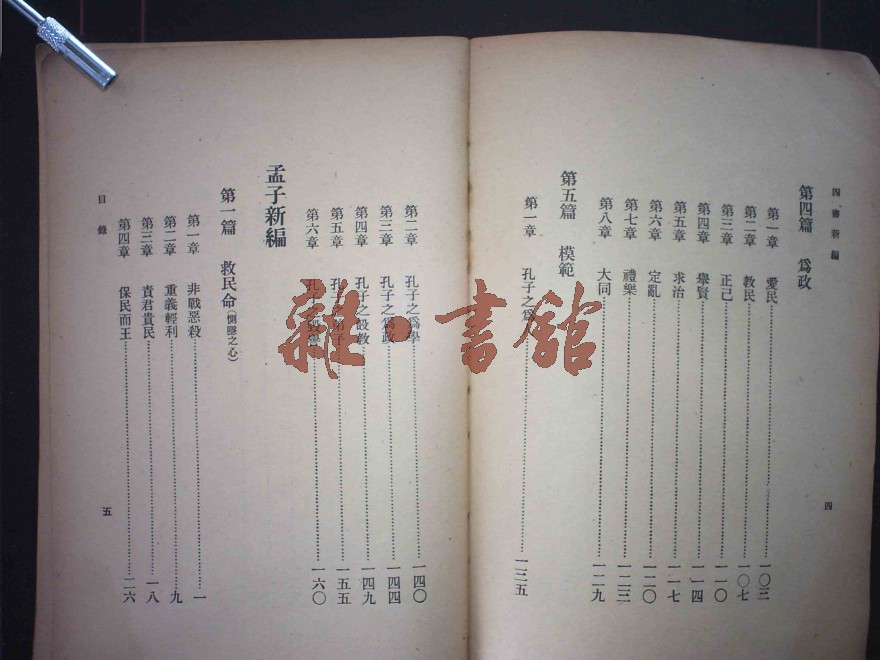 四書新編
第四篇 爲政
第一章 愛民 一〇三
第二章 教民 一〇七
第三章 正己 一一〇
第四章 舉賢 一一四
第五章 求治 一一七
第六章 定亂 一二〇
第七章 禮樂 一二三
第八章 大同 一二九
第五篇 模範
第一章 孔子之爲人 一三五
四
第二章 孔子之爲學 一四〇
第三章 孔子之爲政 一四四
第四章 孔子之設教 一四九
第五章 孔子之弟子 一五五
第六章 孔子之 一六〇
孟子新編
第一篇 救民命(惻隱之心)
第一章 非戰惡殺 一
第二章 重義輕利 九
第三章 責君貴民 一八
第四章 保民而王 二六
目錄
五
雜·書舘